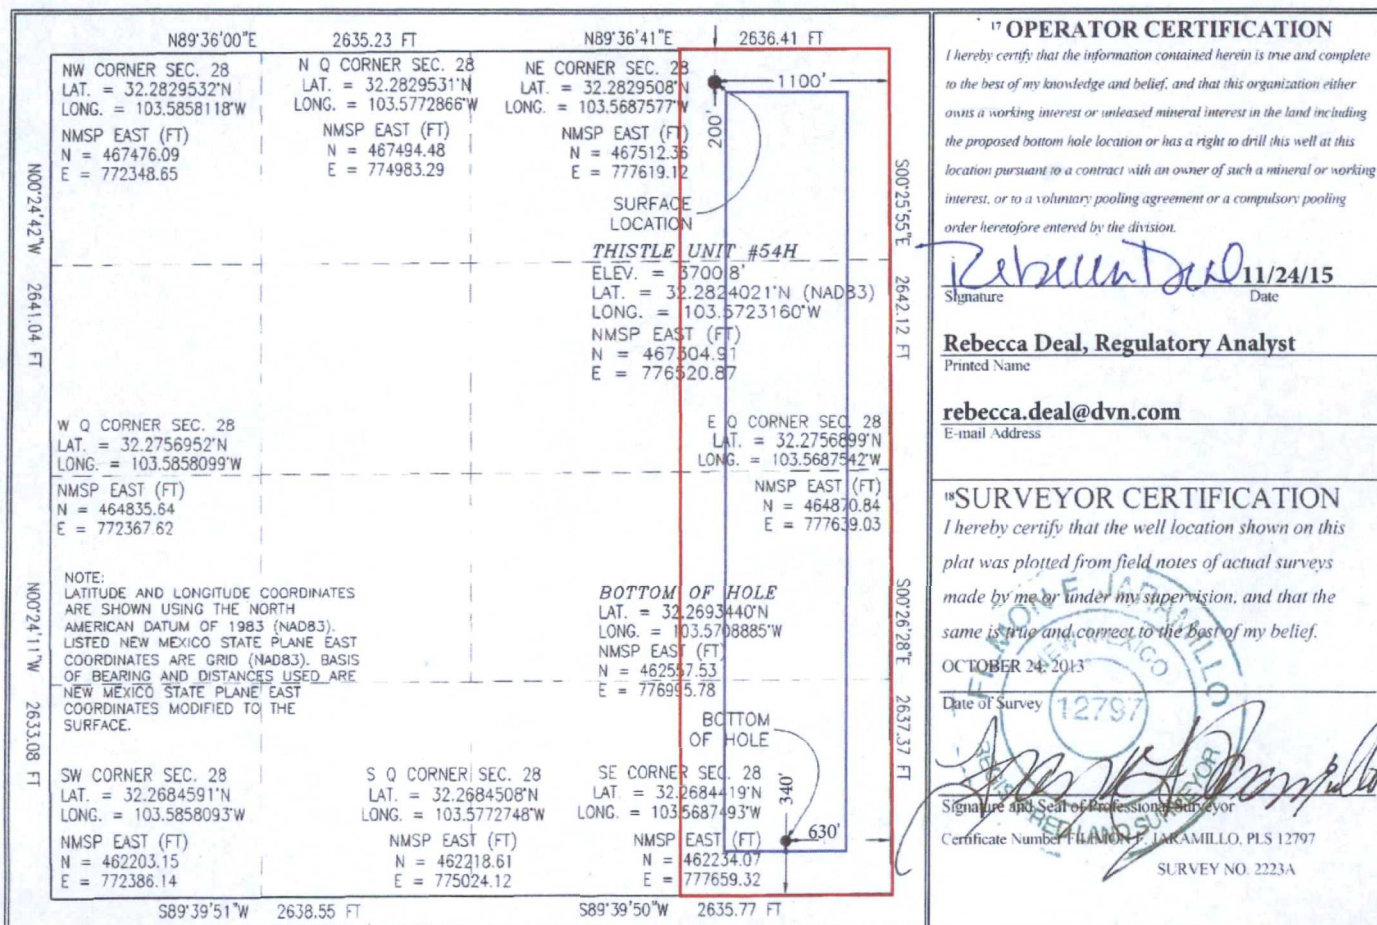 N89°36'00"E 2635.23 FT N89°36'41"E 2636.41 FT
NW CORNER SEC. 28
LAT. = 32.2829532°N
LONG. = 103.5858118°W
NMSP EAST (FT)
N = 467476.09
E = 772348.65
N Q CORNER SEC. 28
LAT. = 32.2829531°N
LONG. = 103.5772866°W
NMSP EAST (FT)
N = 467494.48
E = 774983.29
NE CORNER SEC. 28
LAT. = 32.2829508°N
LONG. = 103.5687577°W
NMSP EAST (FT)
N = 467512.36
E = 777619.12
1100'
200'
SURFACE
LOCATION
THISTLE UNIT #54H
ELEV. = 3700.8'
LAT. = 32.2824021°N (NAD83)
LONG. = 103.5723160°W
NMSP EAST (FT)
N = 467304.91
E = 776520.87
N00°24'42"W 2641.04 FT
S00°25'55"E 2642.12 FT
W Q CORNER SEC. 28
LAT. = 32.2756952°N
LONG. = 103.5858099°W
NMSP EAST (FT)
N = 464835.64
E = 772367.62
E Q CORNER SEC. 28
LAT. = 32.2756899°N
LONG. = 103.5687542°W
NMSP EAST (FT)
N = 464870.84
E = 777639.03
NOTE:
LATITUDE AND LONGITUDE COORDINATES
ARE SHOWN USING THE NORTH
AMERICAN DATUM OF 1983 (NAD83).
LISTED NEW MEXICO STATE PLANE EAST
COORDINATES ARE GRID (NAD83). BASIS
OF BEARING AND DISTANCES USED ARE
NEW MEXICO STATE PLANE EAST
COORDINATES MODIFIED TO THE
SURFACE.
BOTTOM OF HOLE
LAT. = 32.2693440°N
LONG. = 103.5708885°W
NMSP EAST (FT)
N = 462557.53
E = 776995.78
BOTTOM
OF HOLE
340'
630'
N00°24'11"W 2633.08 FT
S00°26'28"E 2637.37 FT
SW CORNER SEC. 28
LAT. = 32.2684591°N
LONG. = 103.5858093°W
NMSP EAST (FT)
N = 462203.15
E = 772386.14
S Q CORNER SEC. 28
LAT. = 32.2684508°N
LONG. = 103.5772748°W
NMSP EAST (FT)
N = 462218.61
E = 775024.12
SE CORNER SEC. 28
LAT. = 32.2684419°N
LONG. = 103.5687493°W
NMSP EAST (FT)
N = 462234.07
E = 777659.32
S89°39'51"W 2638.55 FT S89°39'50"W 2635.77 FT
17 OPERATOR CERTIFICATION
I hereby certify that the information contained herein is true and complete
to the best of my knowledge and belief, and that this organization either
owns a working interest or unleased mineral interest in the land including
the proposed bottom hole location or has a right to drill this well at this
location pursuant to a contract with an owner of such a mineral or working
interest, or to a voluntary pooling agreement or a compulsory pooling
order heretofore entered by the division.
Rebecca Deal 11/24/15
Signature Date
Rebecca Deal, Regulatory Analyst
Printed Name
rebecca.deal@dvn.com
E-mail Address
18 SURVEYOR CERTIFICATION
I hereby certify that the well location shown on this
plat was plotted from field notes of actual surveys
made by me or under my supervision, and that the
same is true and correct to the best of my belief.
OCTOBER 24, 2013
Date of Survey
FILIMON F. JARAMILLO
NEW MEXICO
12797
REGISTERED LAND SURVEYOR
Signature and Seal of Professional Surveyor
Certificate Number FILIMON F. JARAMILLO, PLS 12797
SURVEY NO. 2223A